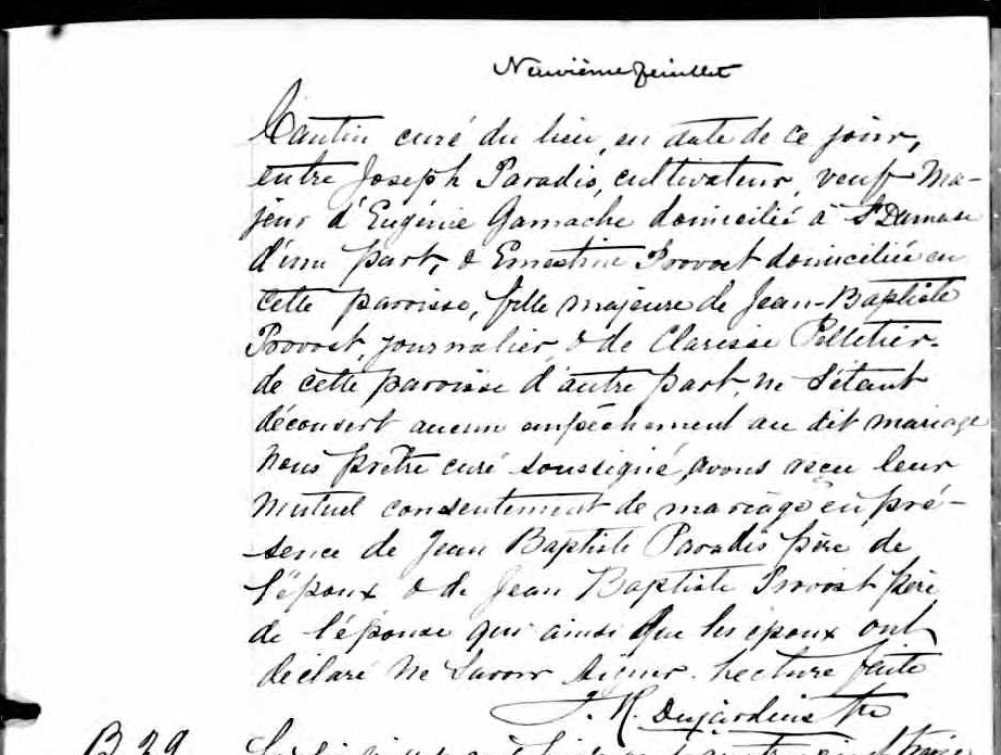 Neuvième feuillet
Cantin curé du lieu, en date de ce jour,
entre Joseph Paradis, cultivateur, veuf Ma-
jeur d'Eugénie Gamache domicilié à St Damase
d'une part, & Ernestine Provost domiciliée en
cette paroisse, fille majeure de Jean-Baptiste
Provost, journalier & de Clarisse Pelletier.
de cette paroisse d'autre part, ne s'étant
découvert aucun empêchement au dit mariage
Nous prêtre curé soussigné, avons reçu leur
mutuel consentement de mariage en pré-
sence de Jean Baptiste Paradis père de
l'époux & de Jean Baptiste Provost père
de l'épouse qui ainsi que les époux ont
déclaré ne savoir signer. Lecture faite
J. R. Dujardins Ptre
B 29